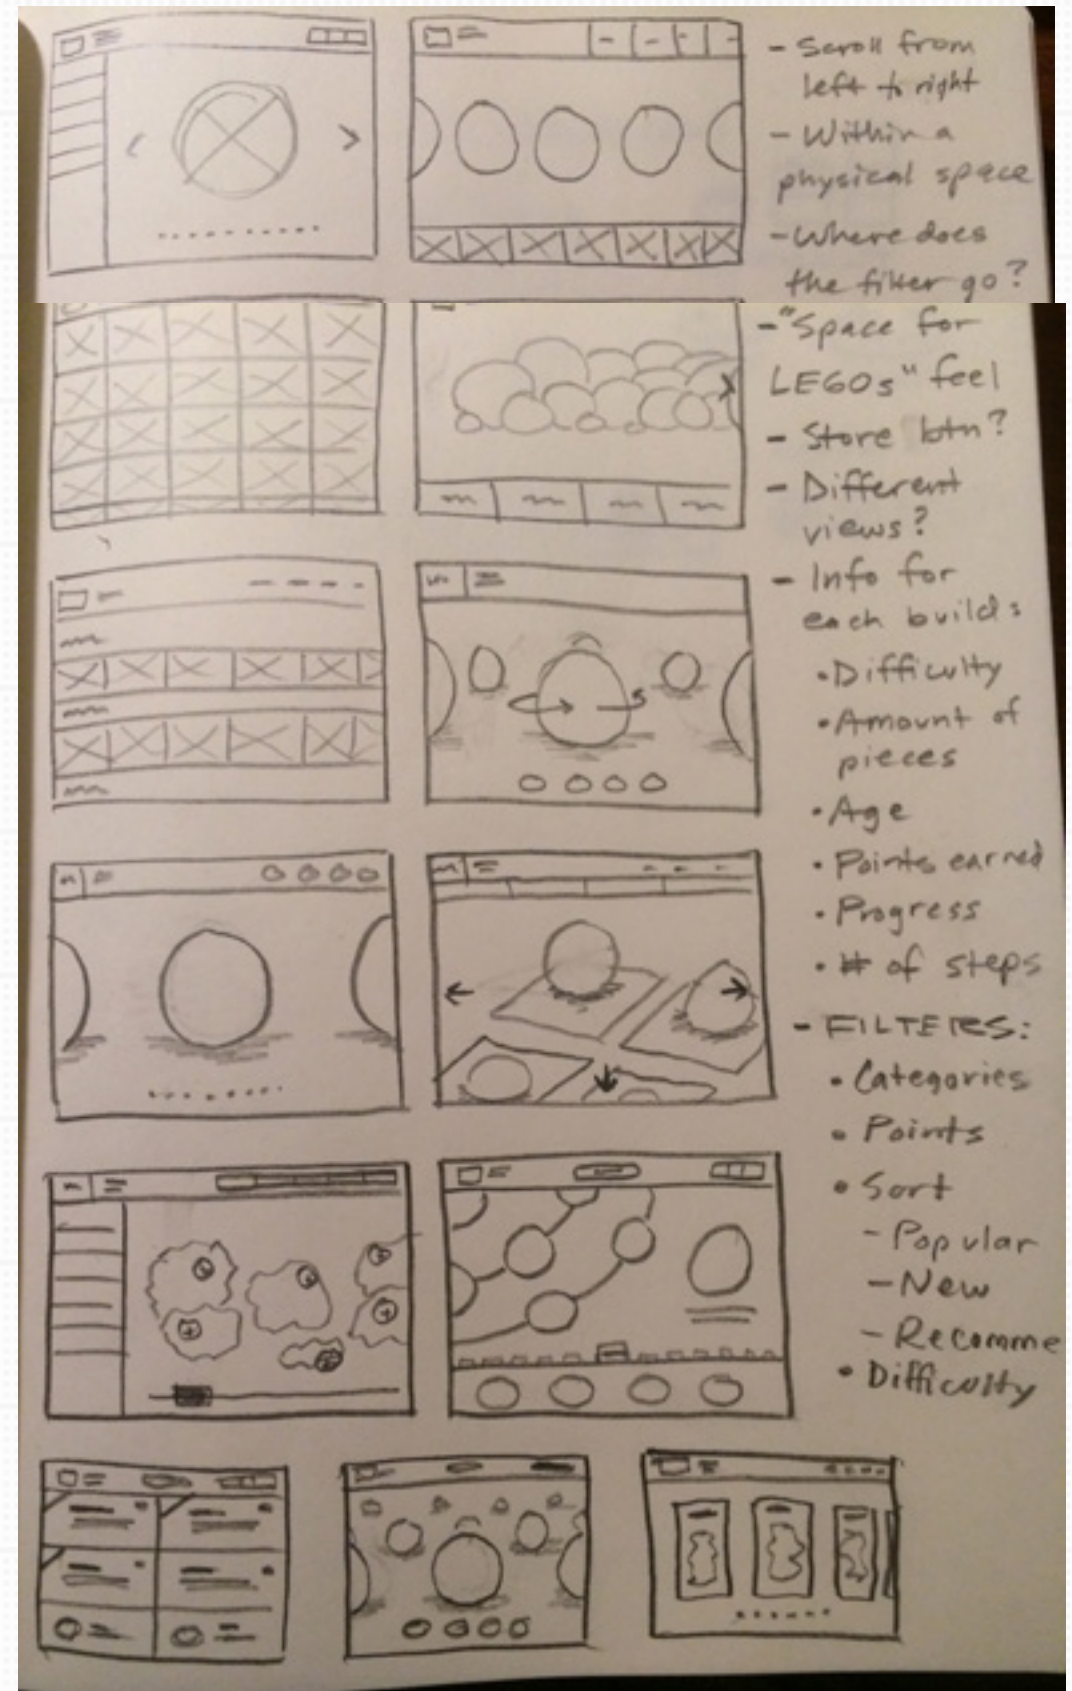 - Scroll from
left to right
- Within a
physical space
- Where does
the filter go?
- "Space for
LEGOs" feel
- Store btn?
- Different
views?
- Info for
each build:
• Difficulty
• Amount of
pieces
• Age
• Points earned
• Progress
• # of steps
- FILTERS:
• Categories
• Points
• Sort
- Popular
- New
- Recomme
• Difficulty